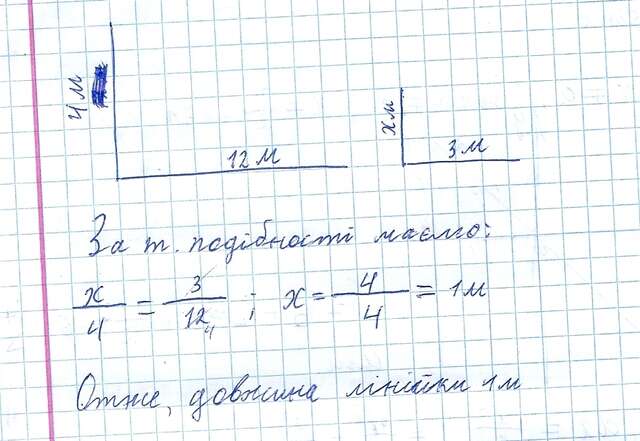 4 м
12 м
х м
3 м
За т. подібності маємо:
х/4 = 3/12 4 ; х = 4/4 = 1 м
Отже, довжина лінійки 1 м